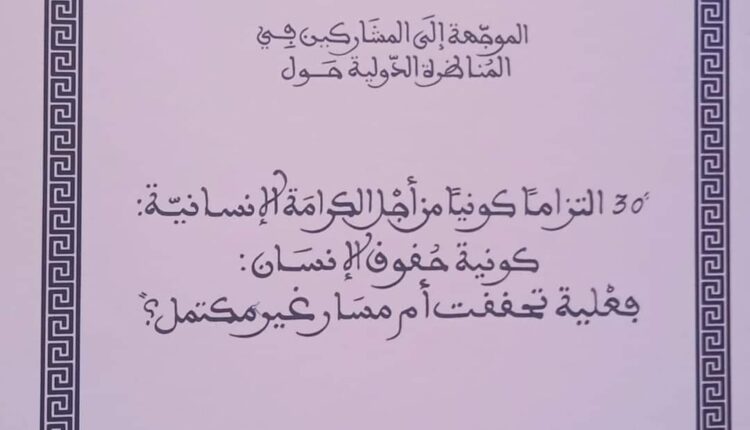 الموجّهة إِلَى المشَاركين فِي
المُناظرة الدّولية حَول
"30 التزامًا كونيًا من أجْل الكرامَة الإنسانيّة:
كونية حُقوق الإنسَان:
فِعْلية تحققت أم مسَار غير مكتمل؟"